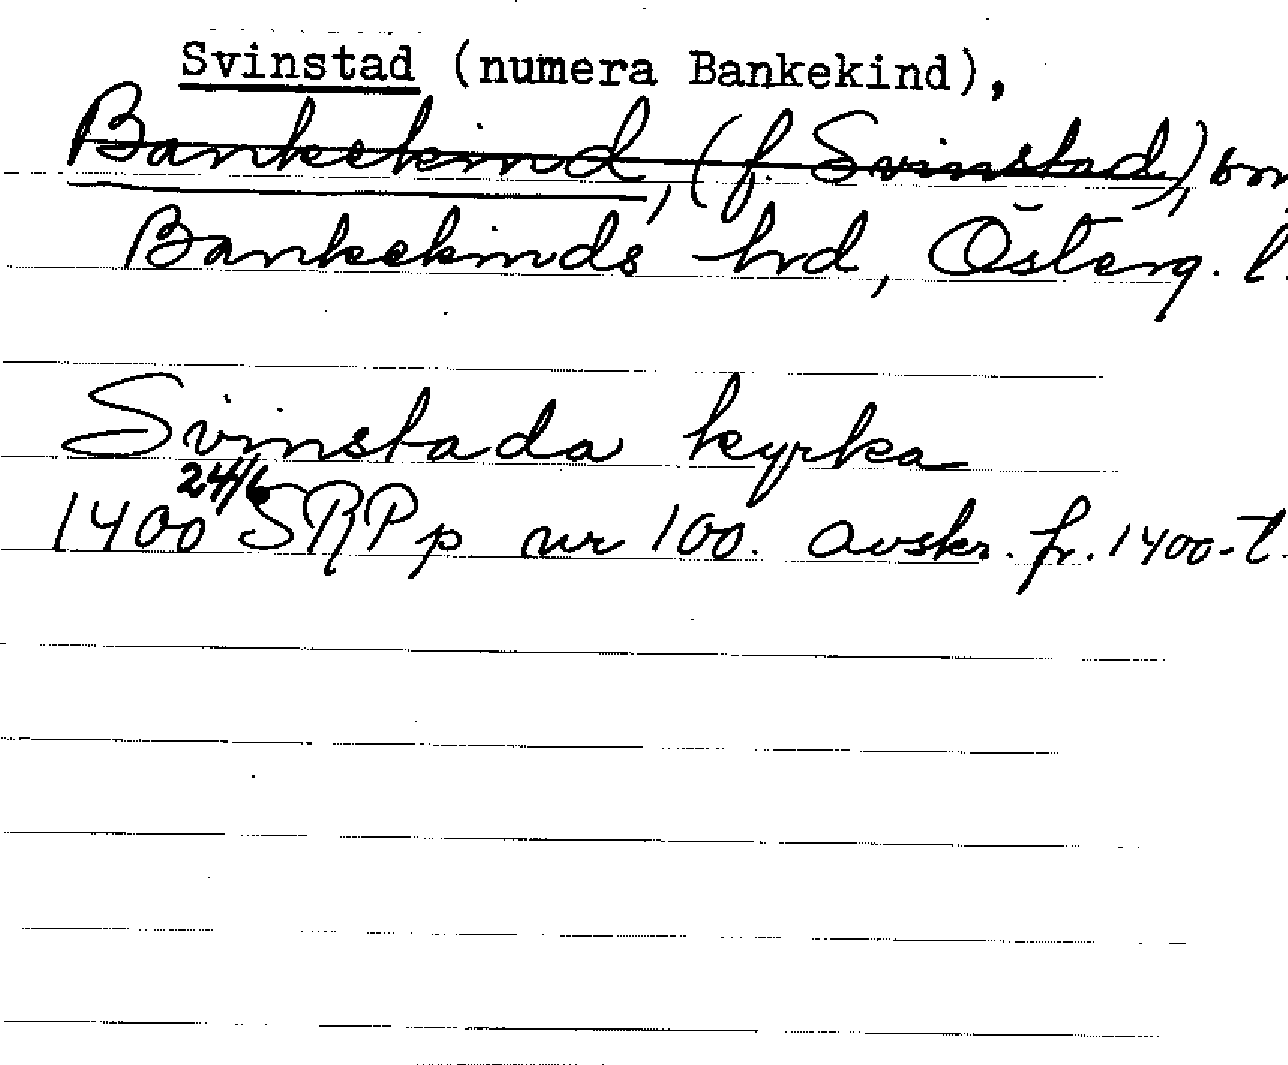 Svinstad (numera Bankekind),
Bankekind, (f. Svinstad), sn
Bankekinds hrd, Österg. l.
Svinstada kyrka
24/6
1400 SRPp nr 100. avskr. fr. 1400-t.